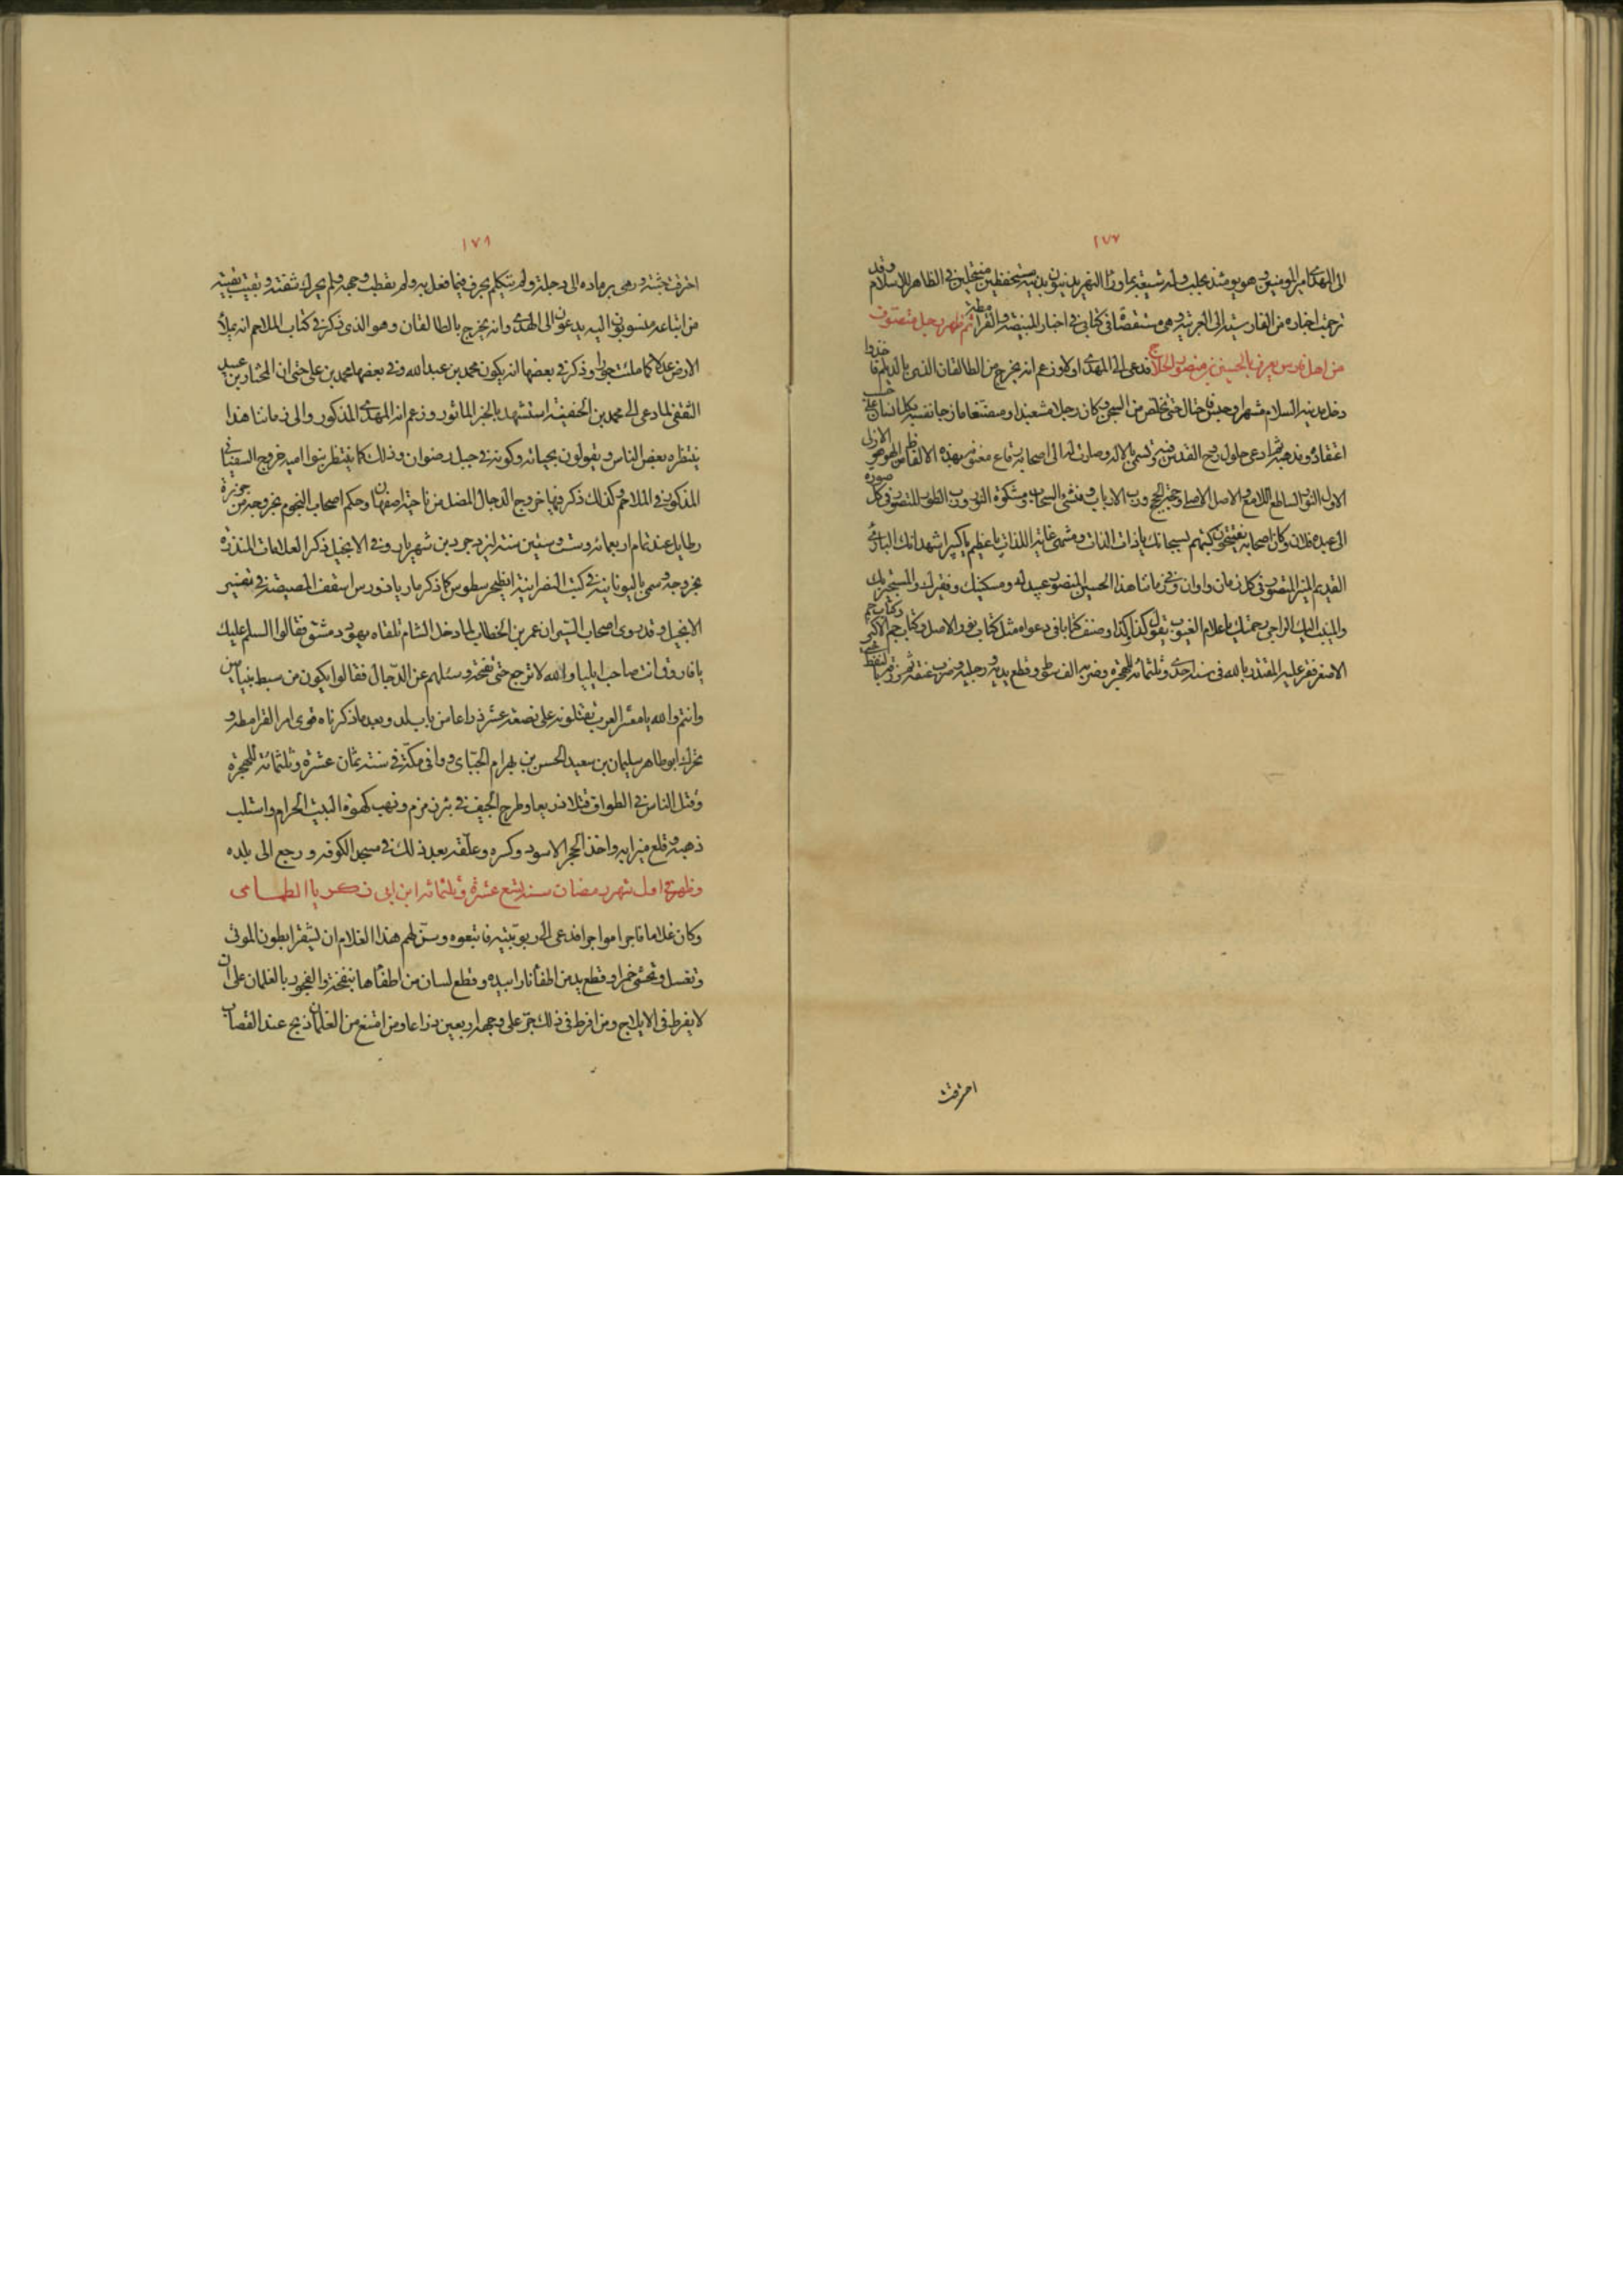 ١٧٧
الى المهدى امير المومنين وهو يومئذ بحلب وله شيعة بماوراء النهر يدينون بدينه مستخفظين منتحلين فى الظاهر للاسلام وقد
ترجمت اخباره من الفارسية الى العربية وهى مستقصاة فى كتابى فى اخبار المبيضة والقرامطة ثم ظهر رجل متصوف
من اهل فارس يعرف بالحسين بن منصور الحلاج فدعى الى المهدى اولا وزعم انه يخرج من الطالقان الذى بالديلم فاخذوا
دخل مدينة السلام مشهرا وحبس فاحتال حتى تخلص من السجن وكان رجلا مشعبذا ومصتنعا مازجا نفسه بكل انسان على حسب
اعتقاده ومذهبه ثم ادعى حلول روح القدس فيه وتسمى بالاله وصارت له الى اصحابه رقاع معنونة بهذه الالفاظ من الهو هو الازلى
الاول النور الساطع اللامع والاصل الاصلى وحجة الحجج ورب الارباب ومنشئ السحاب ومشكوة النور ورب الطور المتصور فى كل صورة
الى عبده فلان وكان اصحابه يفتتحون كتبهم بسبحانك ياذات الذات ومنتهى غاية اللذات ياعظيم ياكبير اشهد انك البارئ
القديم المنير المتصور فى كل زمان واوان وفى زماننا هذا الحسين بن منصور عبيدك ومسكينك وفقيرك والمستجير بك
والمنيب اليك الراجى رحمتك ياعلام الغيوب يقول كذا وكذا وصنف كتابا فى دعواه مثل كتاب نور الاصل وكتاب جم الاكبر وكتاب جم
الاصغر فعثر عليه المقتدر بالله فى سنة احدى وثلثمائة للهجرة وضربه الف سوط وقطع يديه ورجليه وضرب عنقه ثم زرقه بالنفط حتى
احرقت
١٧٨
احرقت جثته ورمى برماده الى دجلة ولم يتكلم بحرف فيما فعل به ولم يقطب وجهه ولم يحرك شفته وبقيت بقية
من اتباعه منسوبون اليه يدعون الى المهدى وانه يخرج بالطالقان وهو الذى ذكر فى كتاب الملاحم انه يملأ
الارض عدلا كما ملئت جورا وذكر فى بعضها انه يكون محمد بن عبدالله وفى بعضها محمد بن على حتى ان المختار بن عبيد
الثقفى لما دعى الى محمد بن الحنفية استشهد بالخبر الماثور وزعم انه المهدى المذكور والى زماننا هذا
ينتظره بعض الناس ويقولون بحياته وكونه فى جبل رضوان وذلك كما ينتظر بنوا امية خروج السفيانى
المذكور فى الملاحم وكذلك ذكر فيها خروج الدجال المضل من ناحية اصفهان وحكم اصحاب النجوم بخروجه من جزيرة
رطايل عند تمام اربعمائة وست وستين سنة ليزدجرد بن شهريار وفى الانجيل ذكر العلامات المنذرة
بخروجه وسمى باليونانية فى كتب النصرانية انطيخرسطوس كما ذكر مار ياذورس اسقف المصيصة فى تفسير
الانجيل وقد روى اصحاب السير ان عمر بن الخطاب لما دخل الشام تلقاه يهود دمشق فقالوا السلم عليك
يافاروق انت صاحب ايليا والله لا ترجع حتى تفتحه وسئلهم عن الدجال فقالوا يكون من سبط بنيامين
وانتم والله يامعشر العرب تقتلونه على بضعة عشر ذراعا من باب لد وبعد ماذكرناه قوى امر القرامطة و
تحرك ابو طاهر سليمان بن سعيد الحسن بن بهرام الجنابى ووافى مكة فى سنة ثمان عشرة وثلثمائة للهجرة
وقتل الناس فى الطواف قتلا ذريعا وطرح الجيف فى بئر زمزم ونهب كسوة البيت الحرام واستلب
ذهبه وقلع ميزابه واخذ الحجر الاسود وكسره وعلقه بعد ذلك فى مسجد الكوفة ورجع الى بلده
وظهر فى اول شهر رمضان سنة تسع عشرة وثلثمائة ابن ابى زكريا الطمامى
وكان غلاما فاجرا مواجرا فدعى الى ربوبيته فاتبعوه وسن لهم هذا الغلام ان يشقرا بطون الموتى
وتغسل وتحشى خمرا وقطع يد من اطفأ نارا بيده وقطع لسان من اطفأها بنفخة والفجور بالغلمان على ان
لايفرط فى الايلاج ومن افرط فى ذلك جر على وجهه اربعين ذراعا ومن امتنع من الغلمان ذبح عند القصاب